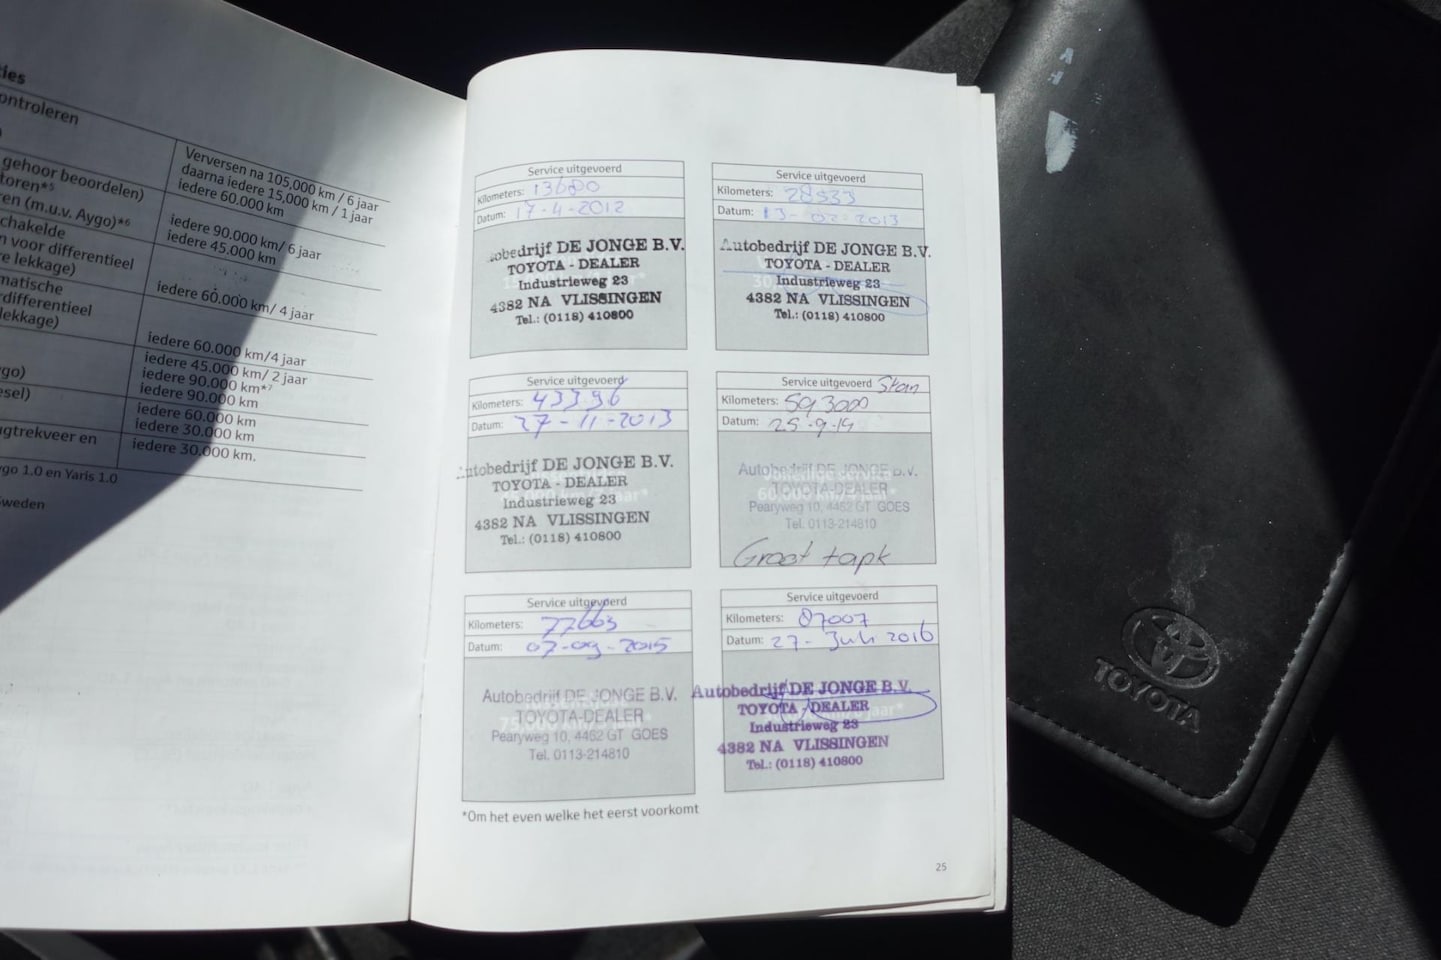 ties
controleren
gehoor beoordelen)
toren*⁵
ren (m.u.v. Aygo)*⁶
schakelde
n voor differentieel
re lekkage)
matische
rdifferentieel
lekkage)
ygo)
esel)
ngtrekveer en
Verversen na 105.000 km / 6 jaar
daarna iedere 15.000 km / 1 jaar
iedere 60.000 km
iedere 90.000 km/ 6 jaar
iedere 45.000 km
iedere 60.000 km/ 4 jaar
iedere 60.000 km/4 jaar
iedere 45.000 km/ 2 jaar
iedere 90.000 km*⁷
iedere 90.000 km
iedere 60.000 km
iedere 30.000 km
iedere 30.000 km.
ygo 1.0 en Yaris 1.0
Sweden
Service uitgevoerd
Kilometers: 13680
Datum: 17-4-2012
Autobedrijf DE JONGE B.V.
TOYOTA - DEALER
Industrieweg 23
4382 NA VLISSINGEN
Tel.: (0118) 410800
Service uitgevoerd
Kilometers: 28533
Datum: 13-02-2013
Autobedrijf DE JONGE B.V.
TOYOTA - DEALER
Industrieweg 23
4382 NA VLISSINGEN
Tel.: (0118) 410800
Service uitgevoerd
Kilometers: 43396
Datum: 27-11-2013
Autobedrijf DE JONGE B.V.
TOYOTA - DEALER
Industrieweg 23
4382 NA VLISSINGEN
Tel.: (0118) 410800
Service uitgevoerd
Kilometers:
Datum: 25-9-14
Autobedrijf DE JONGE B.V.
TOYOTA-DEALER
Pearyweg 10, 4462 GT GOES
Tel. 0113-214810
Groot
Service uitgevoerd
Kilometers: 77663
Datum: 07-09-2015
Autobedrijf DE JONGE B.V.
TOYOTA-DEALER
Pearyweg 10, 4462 GT GOES
Tel. 0113-214810
Service uitgevoerd
Kilometers: 87007
Datum: 27-Juli 2016
Autobedrijf DE JONGE B.V.
TOYOTA - DEALER
Industrieweg 23
4382 NA VLISSINGEN
Tel.: (0118) 410800
*Om het even welke het eerst voorkomt
25
TOYOTA